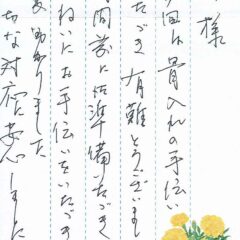 様
今回は骨入れの手伝い
ただき有難とうございまし
時間前に佐準備いただき
ねいにお手伝いをいただき
助かりました
切な対応に安心しました